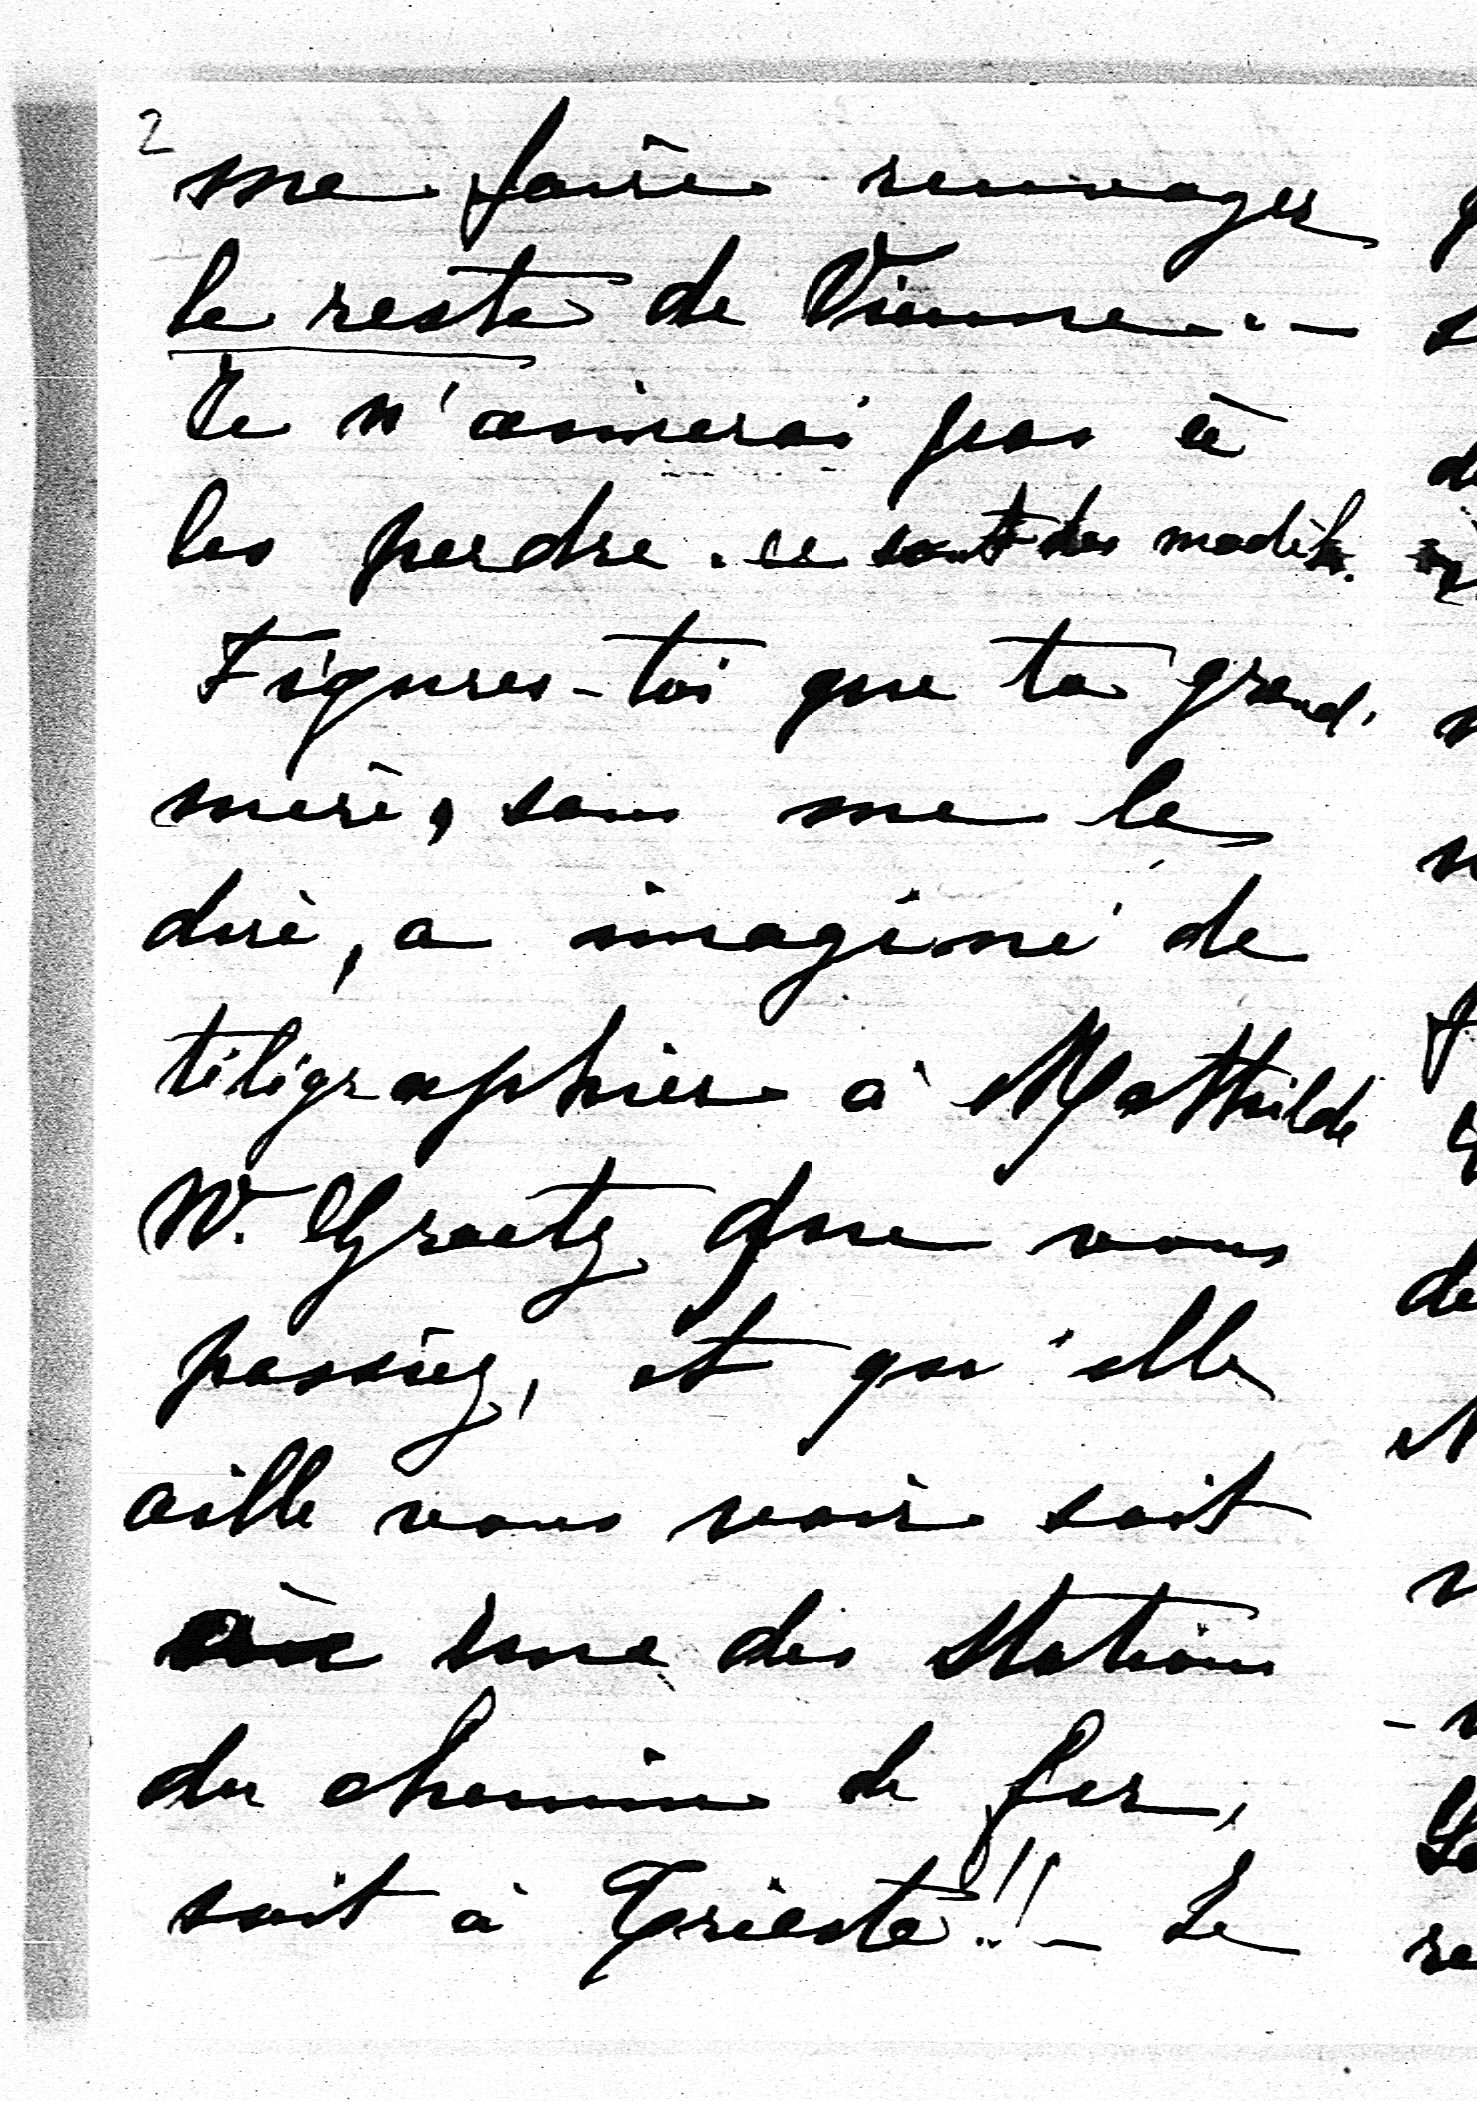 2
me faire renvoyer
le reste de Vienne. –
Je n'aimerai pas à
les perdre. ce sont des modèles.
Figures-toi que ta grand'
mère, sans me le
dire, a imaginé de
télégraphier à Mathilde
W. Graetz que vous
passiez, et qu'elle
aille vous voir soit
à une des stations
du chemin de fer,
soit à Trieste!! – Je